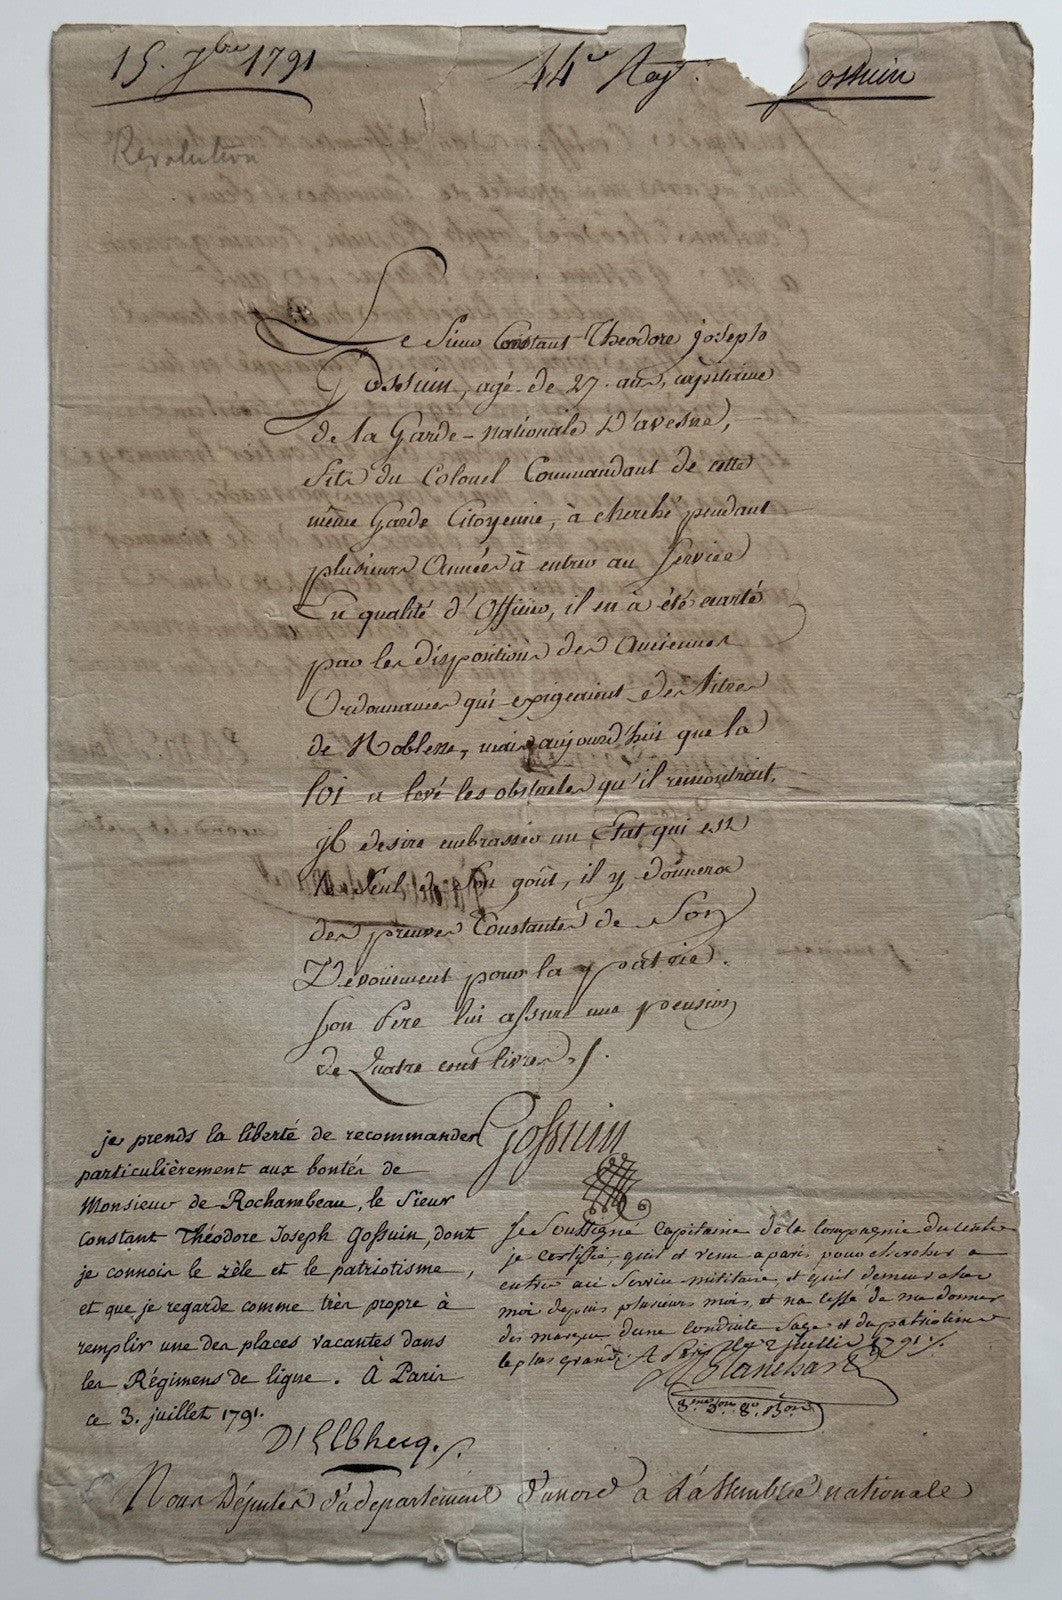 15. 7bre 1791
44e Regt.
Gossuin
Revolution
Le Sieur Constant Theodore joseph
Gossuin, agé de 27 ans, capitaine
de la Garde-nationale D'avesne,
fils du Colonel Commandant de cette
même Garde Citoyenne, à cherché pendant
plusieurs Années à entrer au Service
En qualité d'Officier, il en à été écarté
par les dispositions des Anciennes
Ordonnances qui exigeaient des titres
de Noblesse, mais aujourd'hui que la
loi a levé les obstacles qu'il remontrait,
jl desire embrasser un Etat qui est
le seul de Son goût, il y donnera
des preuves Constantes de Son
Dévoüement pour la patrie.
Son Pere lui assure une pension
de Quatre cent livres ./.
Gossuin
je prends la liberté de recommander
particulièrement aux bontés de
Monsieur de Rochambeau, le Sieur
Constant Théodore Joseph Gossuin, dont
je connois le zèle et le patriotisme,
et que je regarde comme très propre à
remplir une des places vacantes dans
les Régimens de ligne. À Paris
ce 3. juillet 1791.
D'Elbhecq.
Je Soussigné Capitaine de la Compagnie du centre
je certiffie, quil et venu a paris pour chercher a
entrer au Service militaire, et quil demeure chez
moi depuis plusieurs mois, et na cessé de me donner
des marque dune Conduite Sage et du patriotisme
le plus grand. A Paris le 2 juillet 1791 ./.
Blanchard
3me Don 8e Bon
Nous Députés du departement du nord a L'assemblée nationale